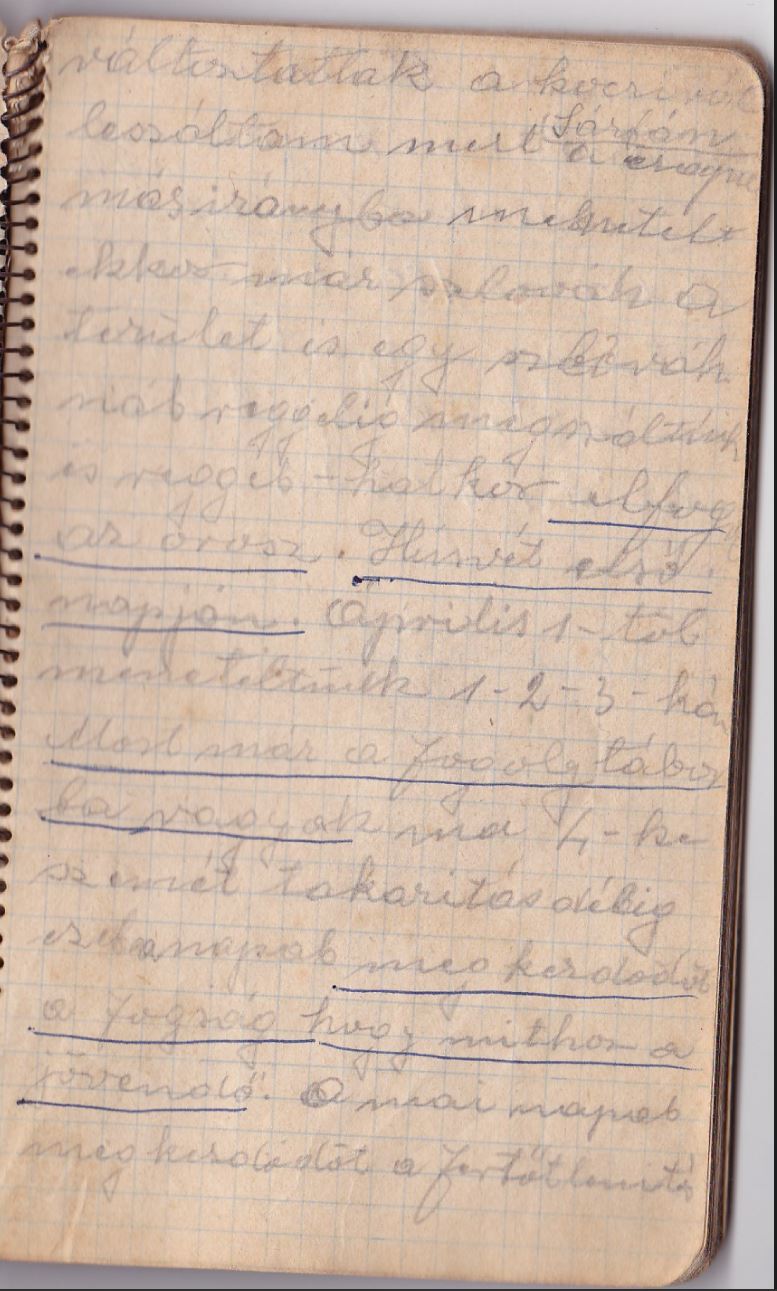 változtattak a kocsiról
leszáltam mert Sárfán
a csapat
más irányba menetelt
ekkor már szlovák a
terület is egy szlovák
náb reggelig megszáltunk
és reggeb-hatkor elfog
az orosz. Húsvét első
napján. Április 1-től
meneteltünk 1-2-3-kán
Most már a fogolytábor
ba vagyok ma 4-ke
szemét takaritás délig
eztanapab meg kezdodöt
a fogság hogy mithoz a
jövendő. A mai napab
meg kezdödöt a fertőtlenités